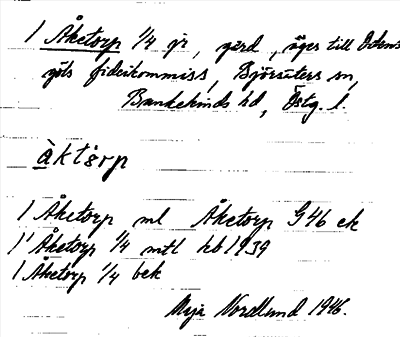 1 Åketorp 1/4 gr, gård, äges till Odens
göts fideikommiss, Björsäters sn,
Bankekinds hd, Östg. l.
àktårp
1 Åketorp ml Åketorp G46 ek
1 Åketorp 1/4 mtl hb 1939
1 Åketorp 1/4 bek
Maja Nordlund 1946.